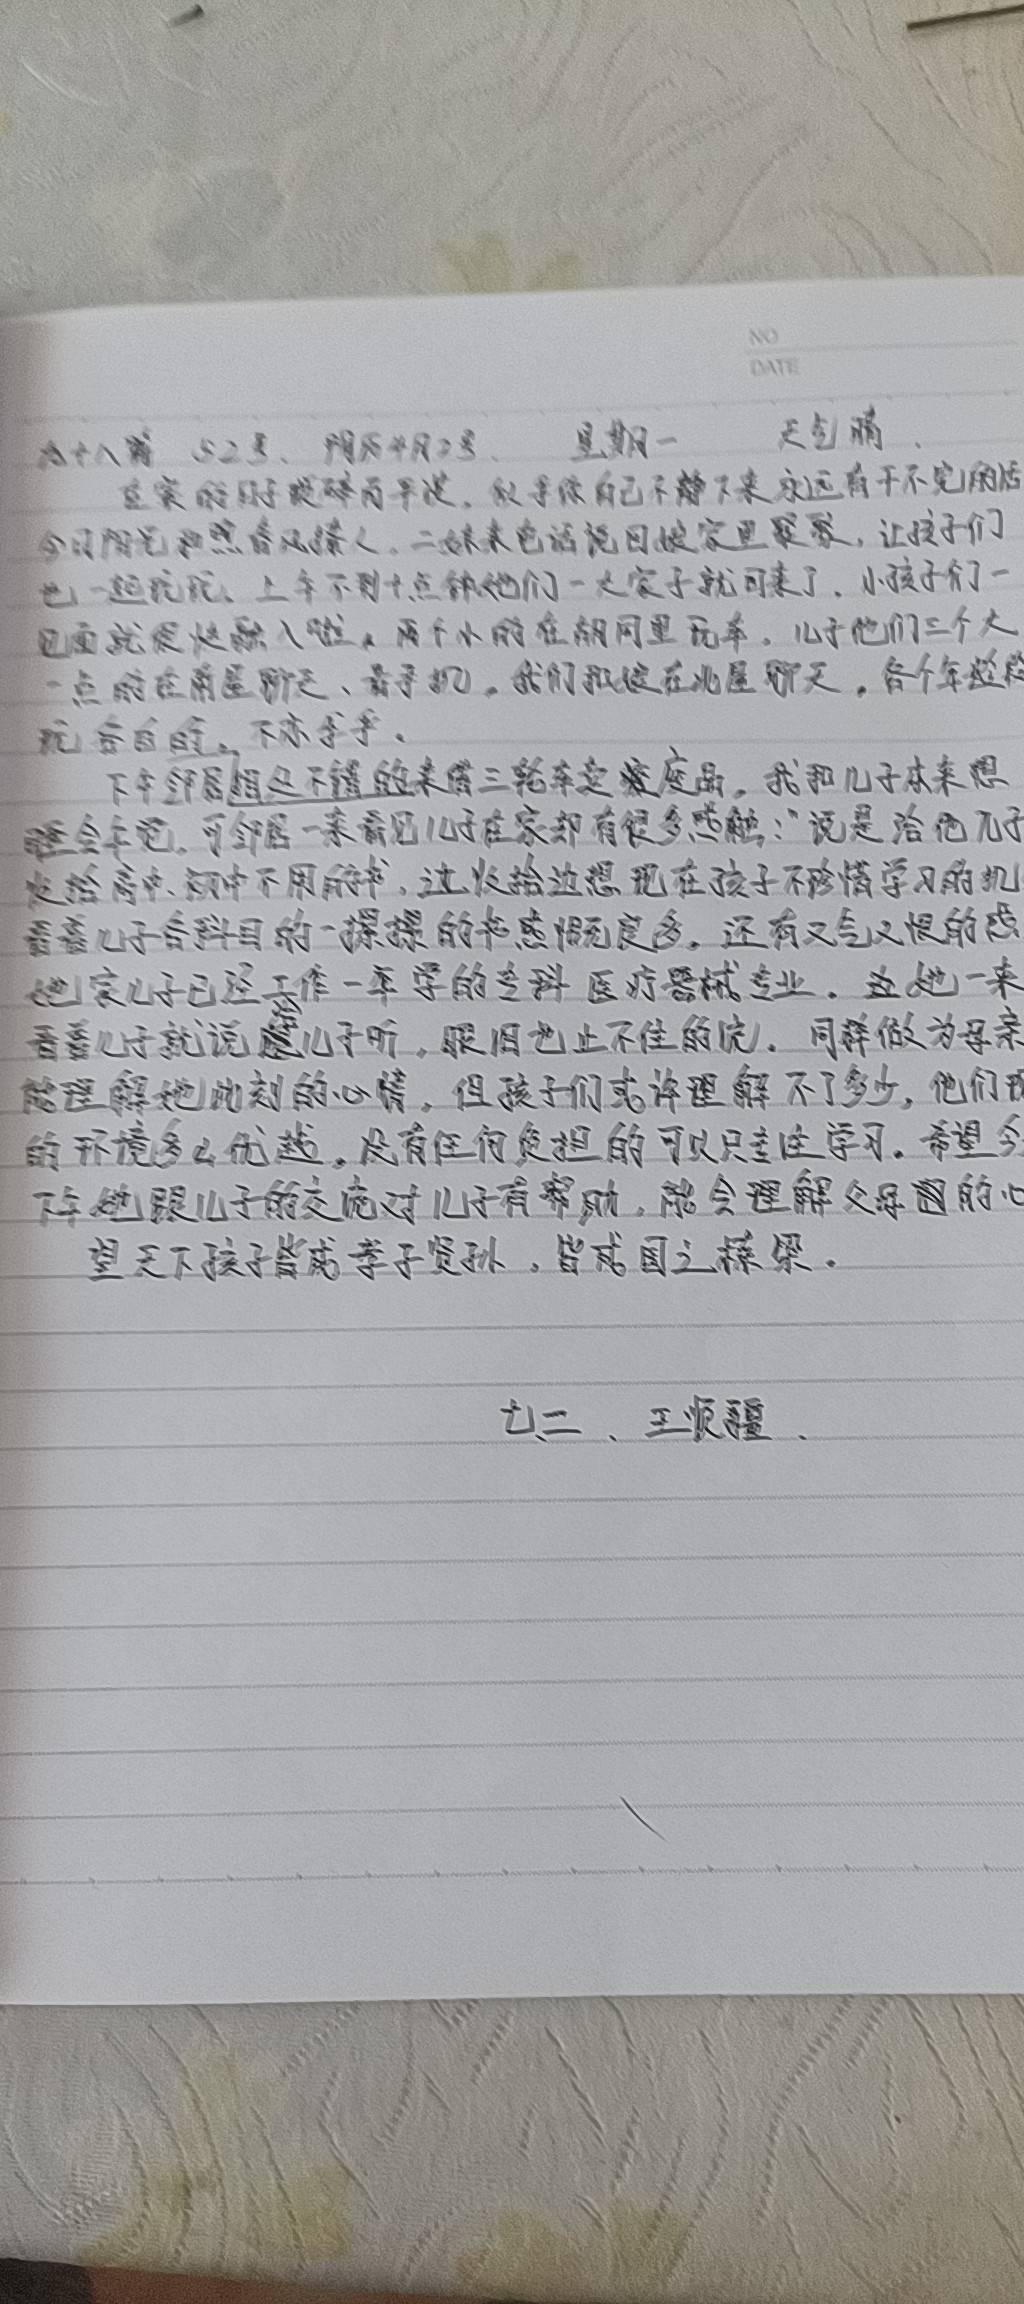 NO
DATE
六十八篇 52号、阴历4月2号、 星期一 天气晴.
在家的日子琐碎而平淡,似乎你自己不静下来永远有干不完的活
今日阳光和煦春风撩人,二妹来电话说回娘家里聚聚,让孩子们
也一起玩玩、上午不到十点钟他们一大家子就回来了,小孩子们一
见面就很快融入啦。两个小的在胡同里玩车,儿子他们三个大
一点的在南屋聊天、看手机。我们和娘在北屋聊天,各个年龄段
玩各自的。不亦乐乎。
下午邻居相处不错的来借三轮车卖废品。我和儿子本来想
睡会午觉,可邻居一来看见儿子在家却有很多感触:“说是给他儿子
收拾高中、初中不用的书,边收拾边想现在孩子不珍惜学习的机
看着儿子各科目的一摞摞的书感慨良多。还有又气又恨的感
她家儿子已经工作一年学的专科医疗器械专业。 她一来
看着儿子就说给儿子听,眼泪也止不住的流。同样做为母亲
能理解她此刻的心情,但孩子们或许理解不了多少,他们现
的环境多么优越,没有任何负担的可以只专注学习。希望今
下午她跟儿子的交流对儿子有帮助,能会理解父母 的心
望天下孩子皆成孝子贤孙,皆成国之栋梁。
七二、王顺疆.